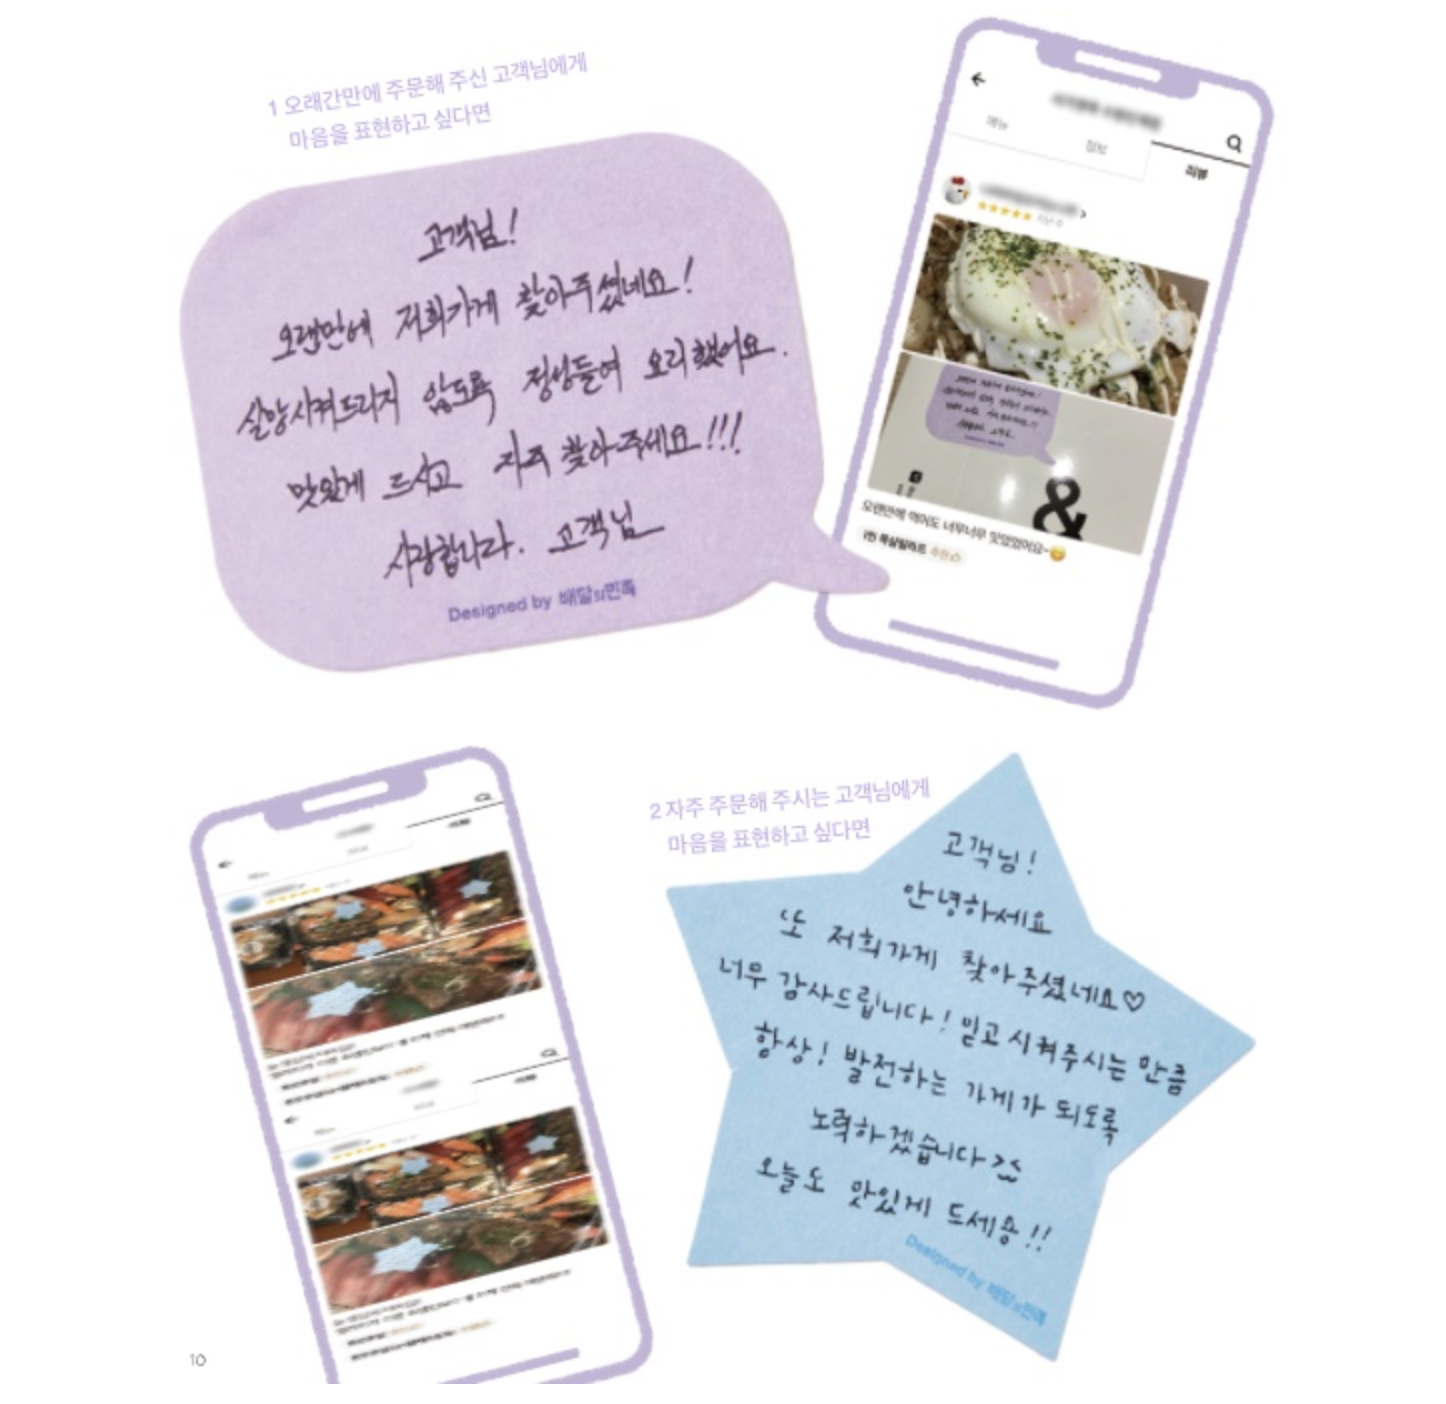 1 오래간만에 주문해 주신 고객님에게
마음을 표현하고 싶다면
고객님!
오랜만에 저희가게 찾아주셨네요!
실망시켜드리지 않도록 정성들여 요리했어요.
맛있게 드시고 자주 찾아주세요!!!
사랑합니다. 고객님
Designed by 배달의민족
메뉴
정보
리뷰
지난 주
&
오랜만에 먹어도 너무너무 맛있었어요~
1인 목살필라프 추천
2 자주 주문해 주시는 고객님에게
마음을 표현하고 싶다면
고객님!
안녕하세요
또 저희가게 찾아주셨네요♡
너무 감사드립니다! 믿고 시켜주시는 만큼
항상! 발전하는 가게가 되도록
노력하겠습니다
오늘도 맛있게 드세용!!
Designed by 배달의민족
10